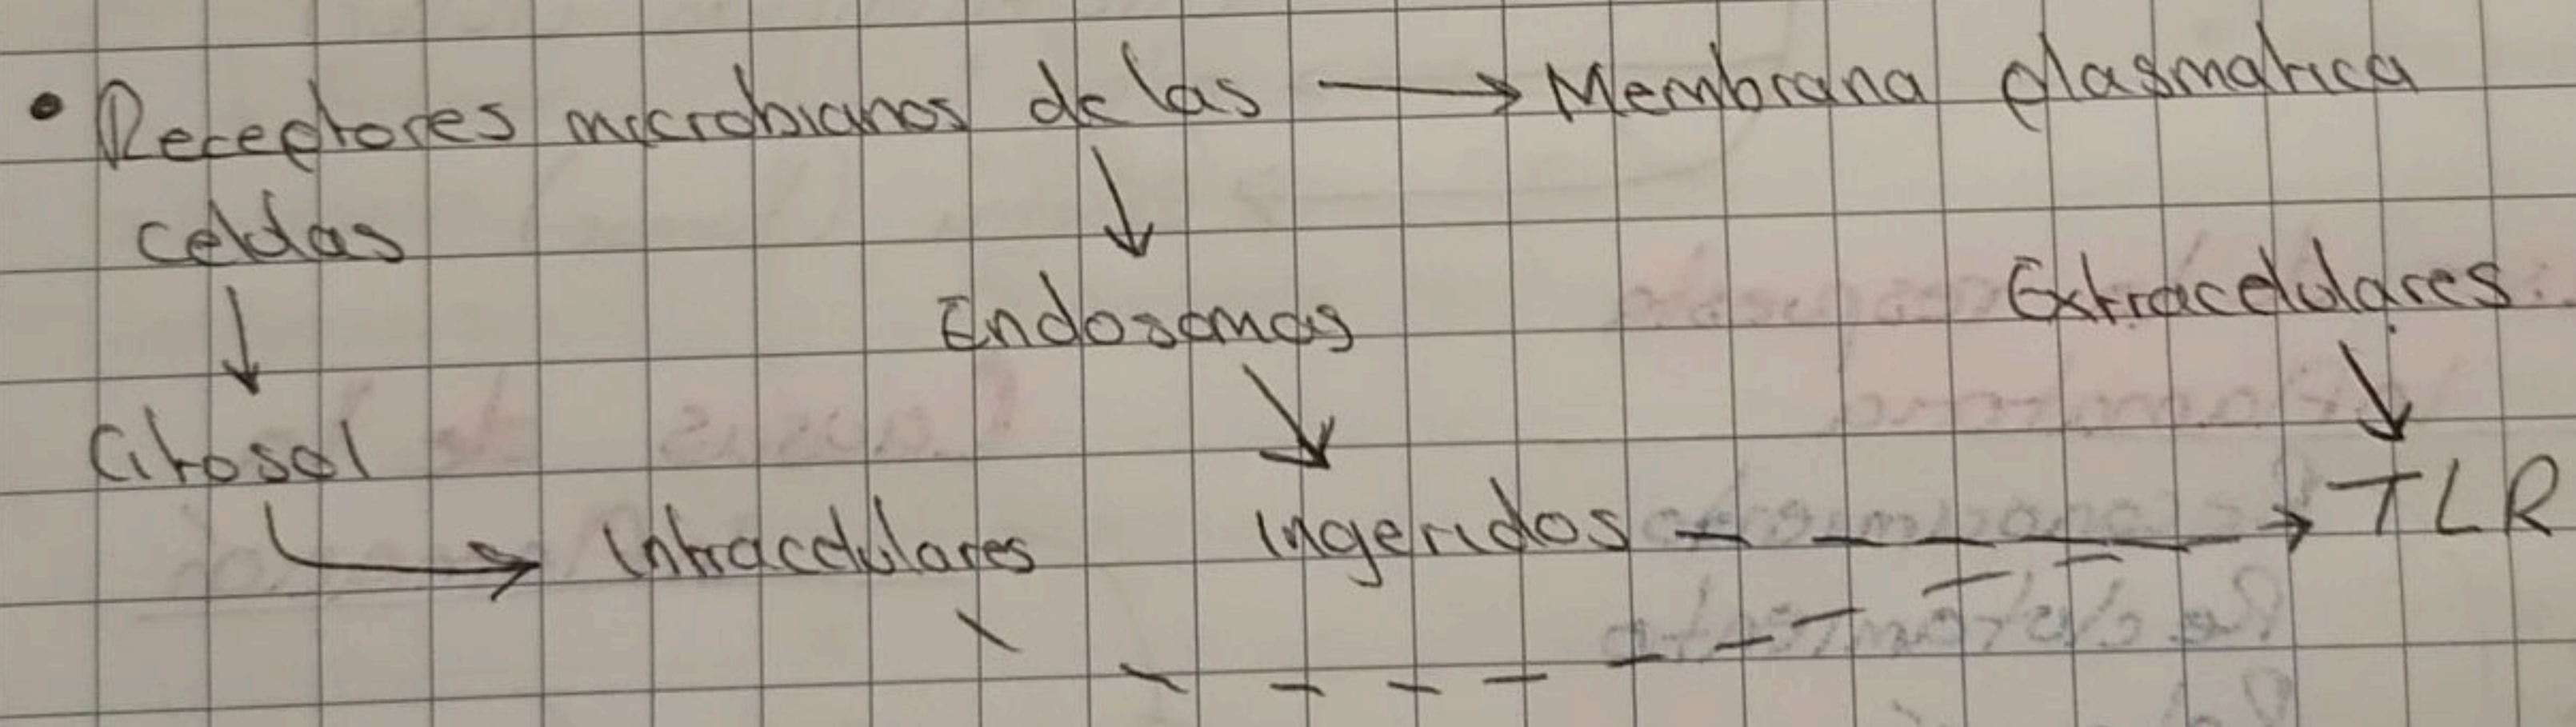 • Receptores microbianos de las → Membrana plasmatica
celdas
↓ ↓
Endosomas Extracelulares
↓ ↓
Citosol
Intracelulares Ingeridos → TLR